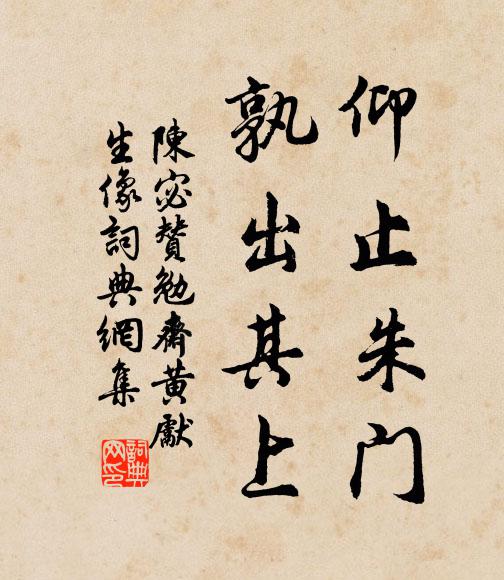 仰止朱门
孰出其上
陳宓贊勉齋黃獻
生像詞典網集
詞典网印